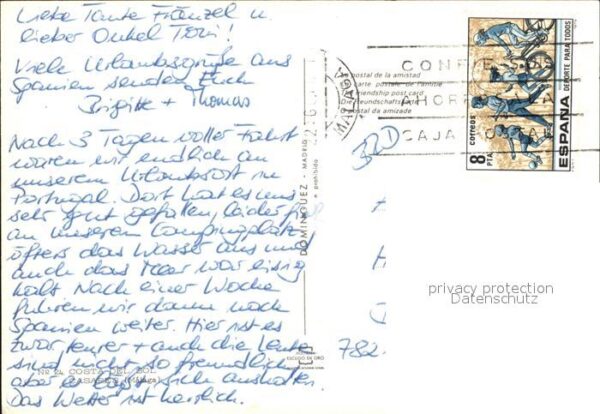 Liebe Tante Fränzel u.
lieber Onkel Toni!
Viele Urlaubsgrüße aus
Spanien senden Euch
Brigitte + Thomas
Nach 3 Tagen voller Fahrt
waren wir endlich an
unserem Urlaubsort in
Portugal. Dort hat es uns
sehr gut gefallen, leider fiel
an unserem Campingplatz
öfters das Wasser aus und
auch das Meer war eisig
kalt. Nach einer Woche
fuhren wir dann nach
Spanien weiter. Hier ist es
zwar teurer + auch die Leute
sind nicht so freundlich
aber es lässt sich aushalten.
Das Wetter ist herrlich.
Nº 24 COSTA DEL SOL
CASARES (Málaga)
DOMINGUEZ - MADRID
prohibido
ESCUDO DE ORO
postal de la amistad
carte postale de l'amitié
friendship post card
Die Freundschaftskarte
postal da amizade
MALAGA
CAJA
BRD
782
correos
8
PTA
ESPAÑA
DEPORTE PARA TODOS
privacy protection
Datenschutz